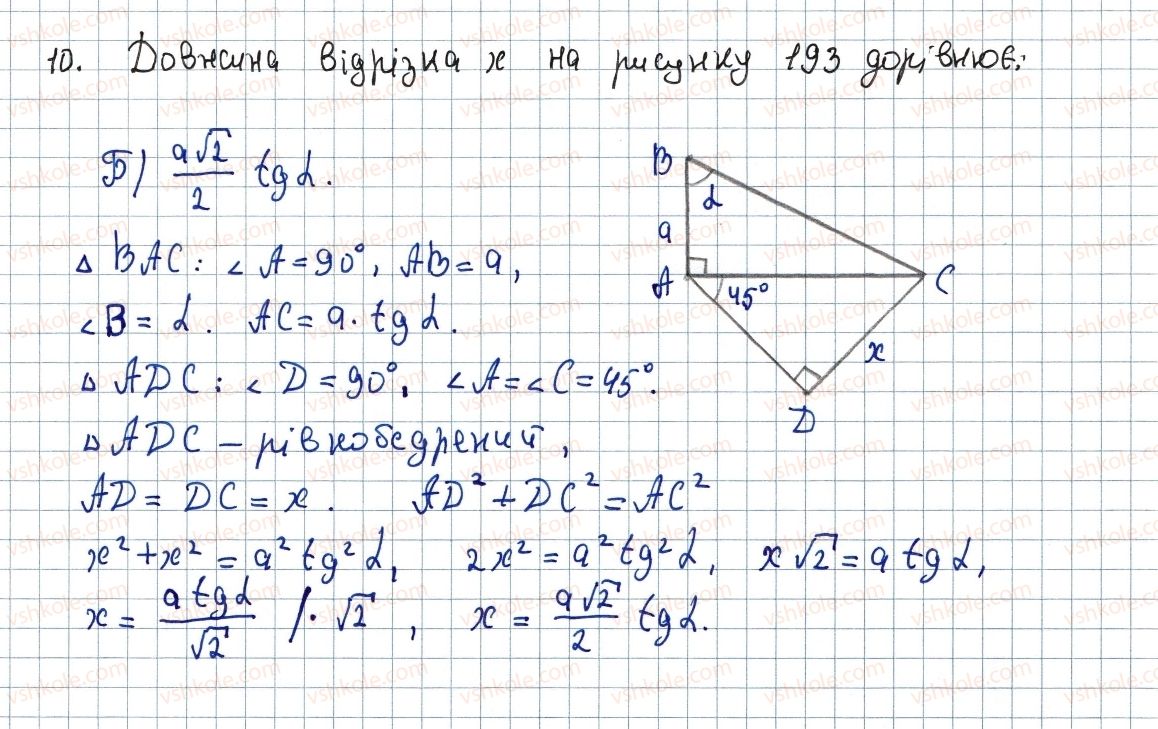 10. Довжина відрізка x на рисунку 193 дорівнює:
Б) a√2/2 tg α.
Δ BAC: ∠ A = 90°, AB = a,
∠B = α. AC = a · tg α.
Δ ADC: ∠ D = 90°, ∠A = ∠C = 45°.
Δ ADC – рівнобедрений,
AD = DC = x. AD² + DC² = AC²
x² + x² = a² tg² α, 2x² = a² tg² α, x√2 = a tg α,
x = a tg α/√2 /· √2, x = a√2/2 tg α.
B
α
a
A
45°
C
x
D
vshkole.com